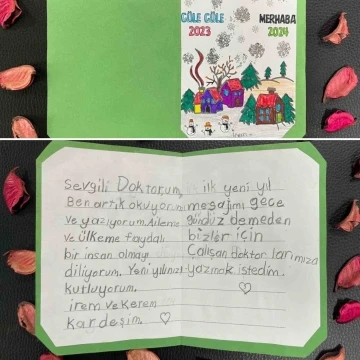 GÜLE GÜLE
2023
MERHABA
2024
irem
Sevgili Doktorum,
Ben artık okuyorum
ve yazıyorum. Aileme
ve ülkeme faydalı
bir insan olmayı
diliyorum. Yeni yılınızı
kutluyorum.
irem ve Kerem
kardeşim.
ilk yeni yıl
mesajımı gece
gündüz demeden
bizler için
Çalışan doktorlarımıza
yazmak istedim.